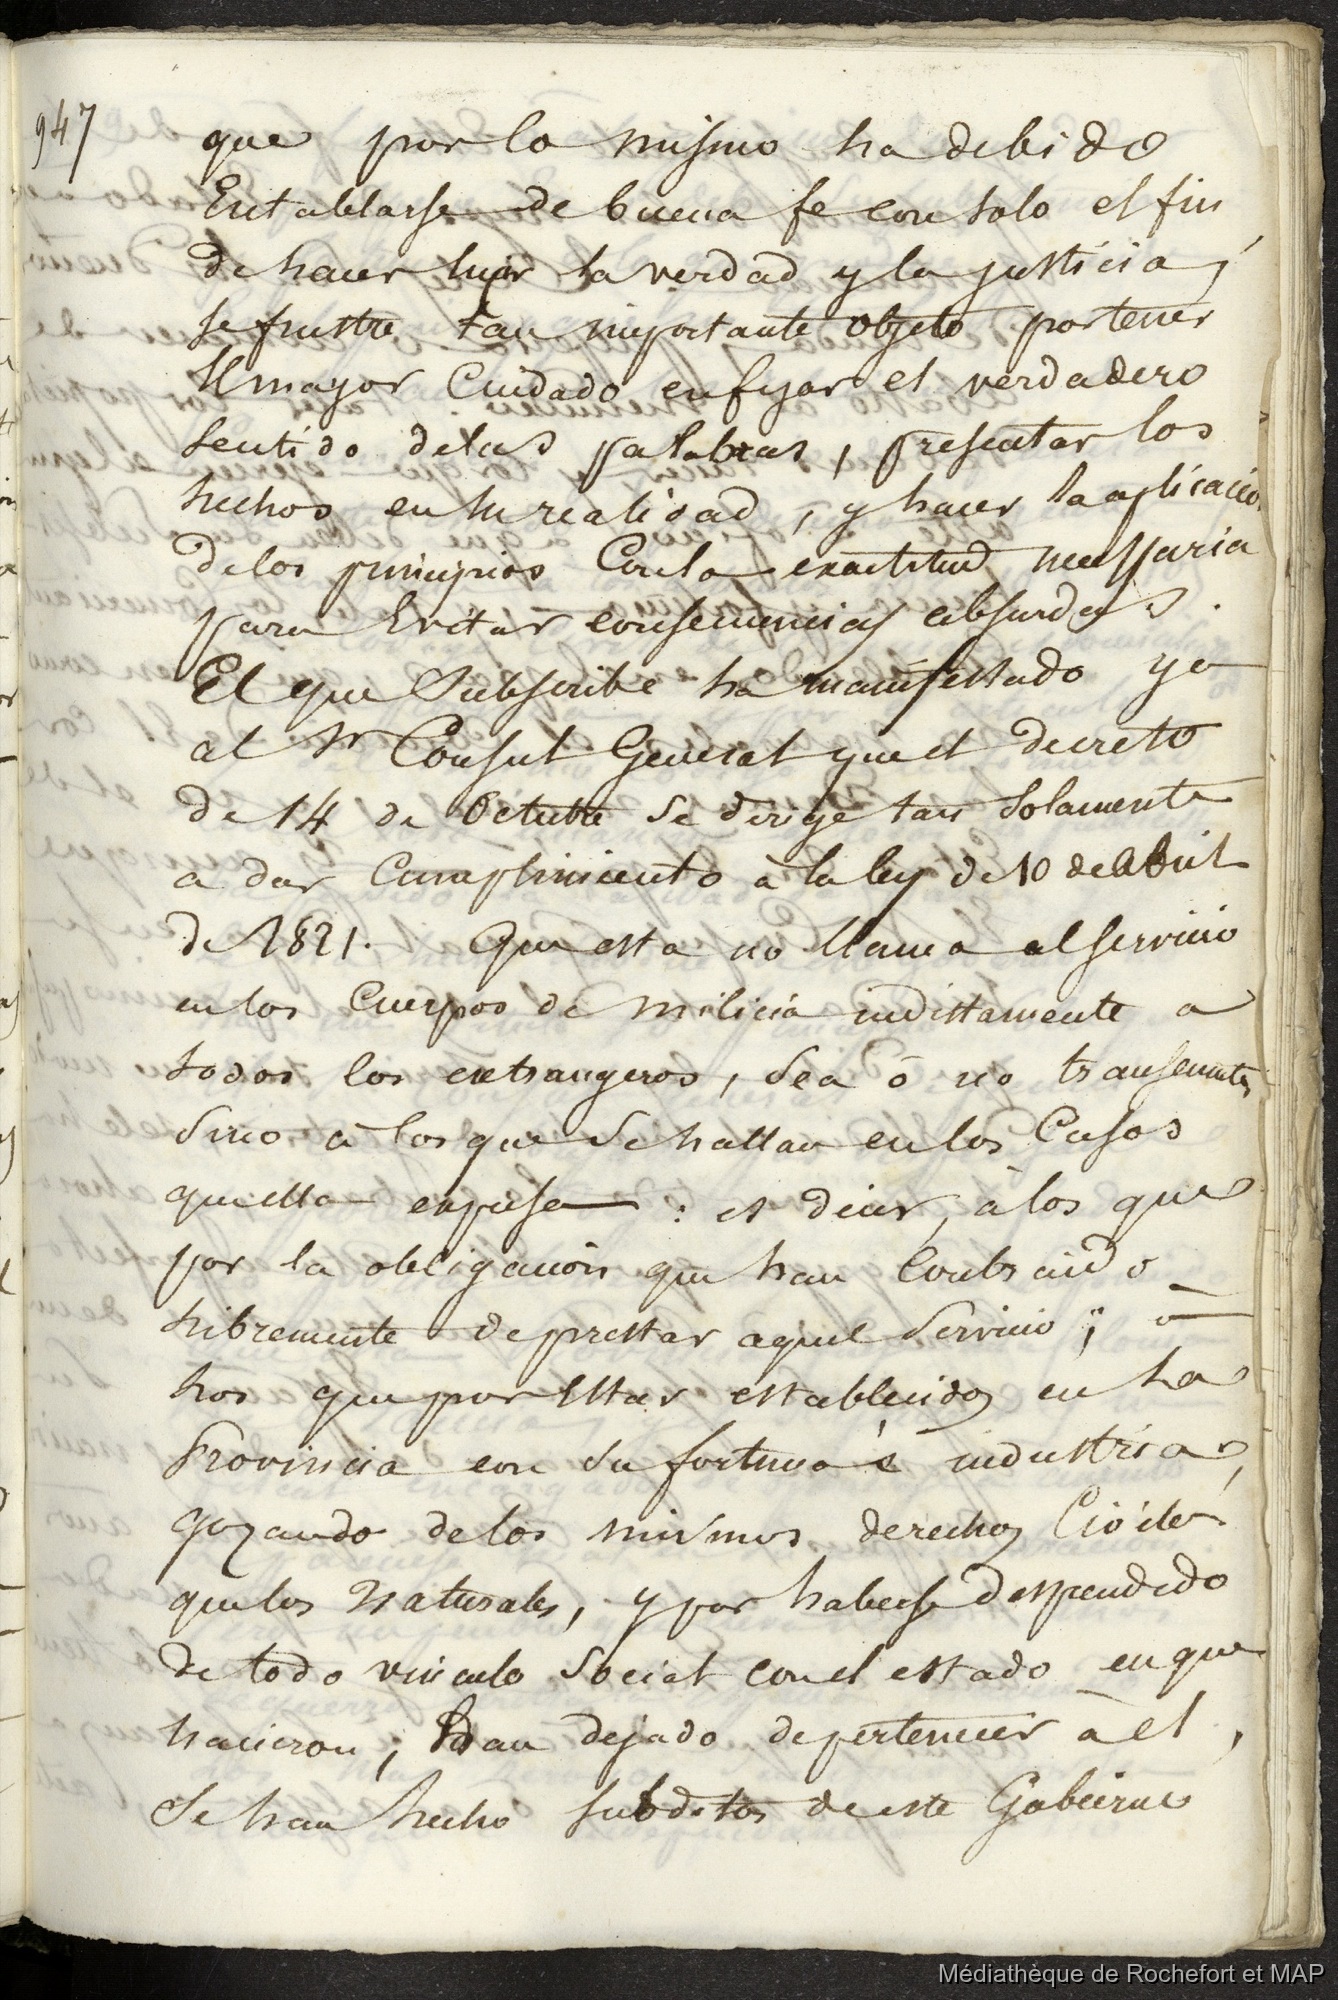 947
que por lo mismo ha debido
Entablarse de buena fe con solo el fin
de hacer lucir la verdad y la justicia,
se frustre tan importante objeto por tener
el mayor Cuidado en fijar el verdadero
sentido de las palabras, presentar los
hechos en su realidad, y hacer la aplicacion
de los principios Con la exactitud necessaria
para Evitar consecuencias absurdas.
El que Subscribe ha manifestado ya
al Sr Consul General que el decreto
de 14 de Octubre se dirige tan Solamente
a dar Cumplimiento à la ley de 10 de Abril
de 1821. Que esta no llama al servicio
en los Cuerpos de milicia indistamente a
todos los extrangeros, Sea ó no transeuntes
Sino à los que Se hallan en los Casos
que ella expresa: es decir, à los que
por la obligacion que han Contraido
libremente de prestar aquel Servicio; ó
los que por Estar establecidos en la
Provincia con su fortuna é industria,
gozando de los mismos derechos Civiles
que los Naturales, y por haberse desprendido
de todo vinculo Social con el estado en que
nacieron; Han dejado de pertenecer à el,
Se han hecho subditos de este Gobierno
Médiathèque de Rochefort et MAP